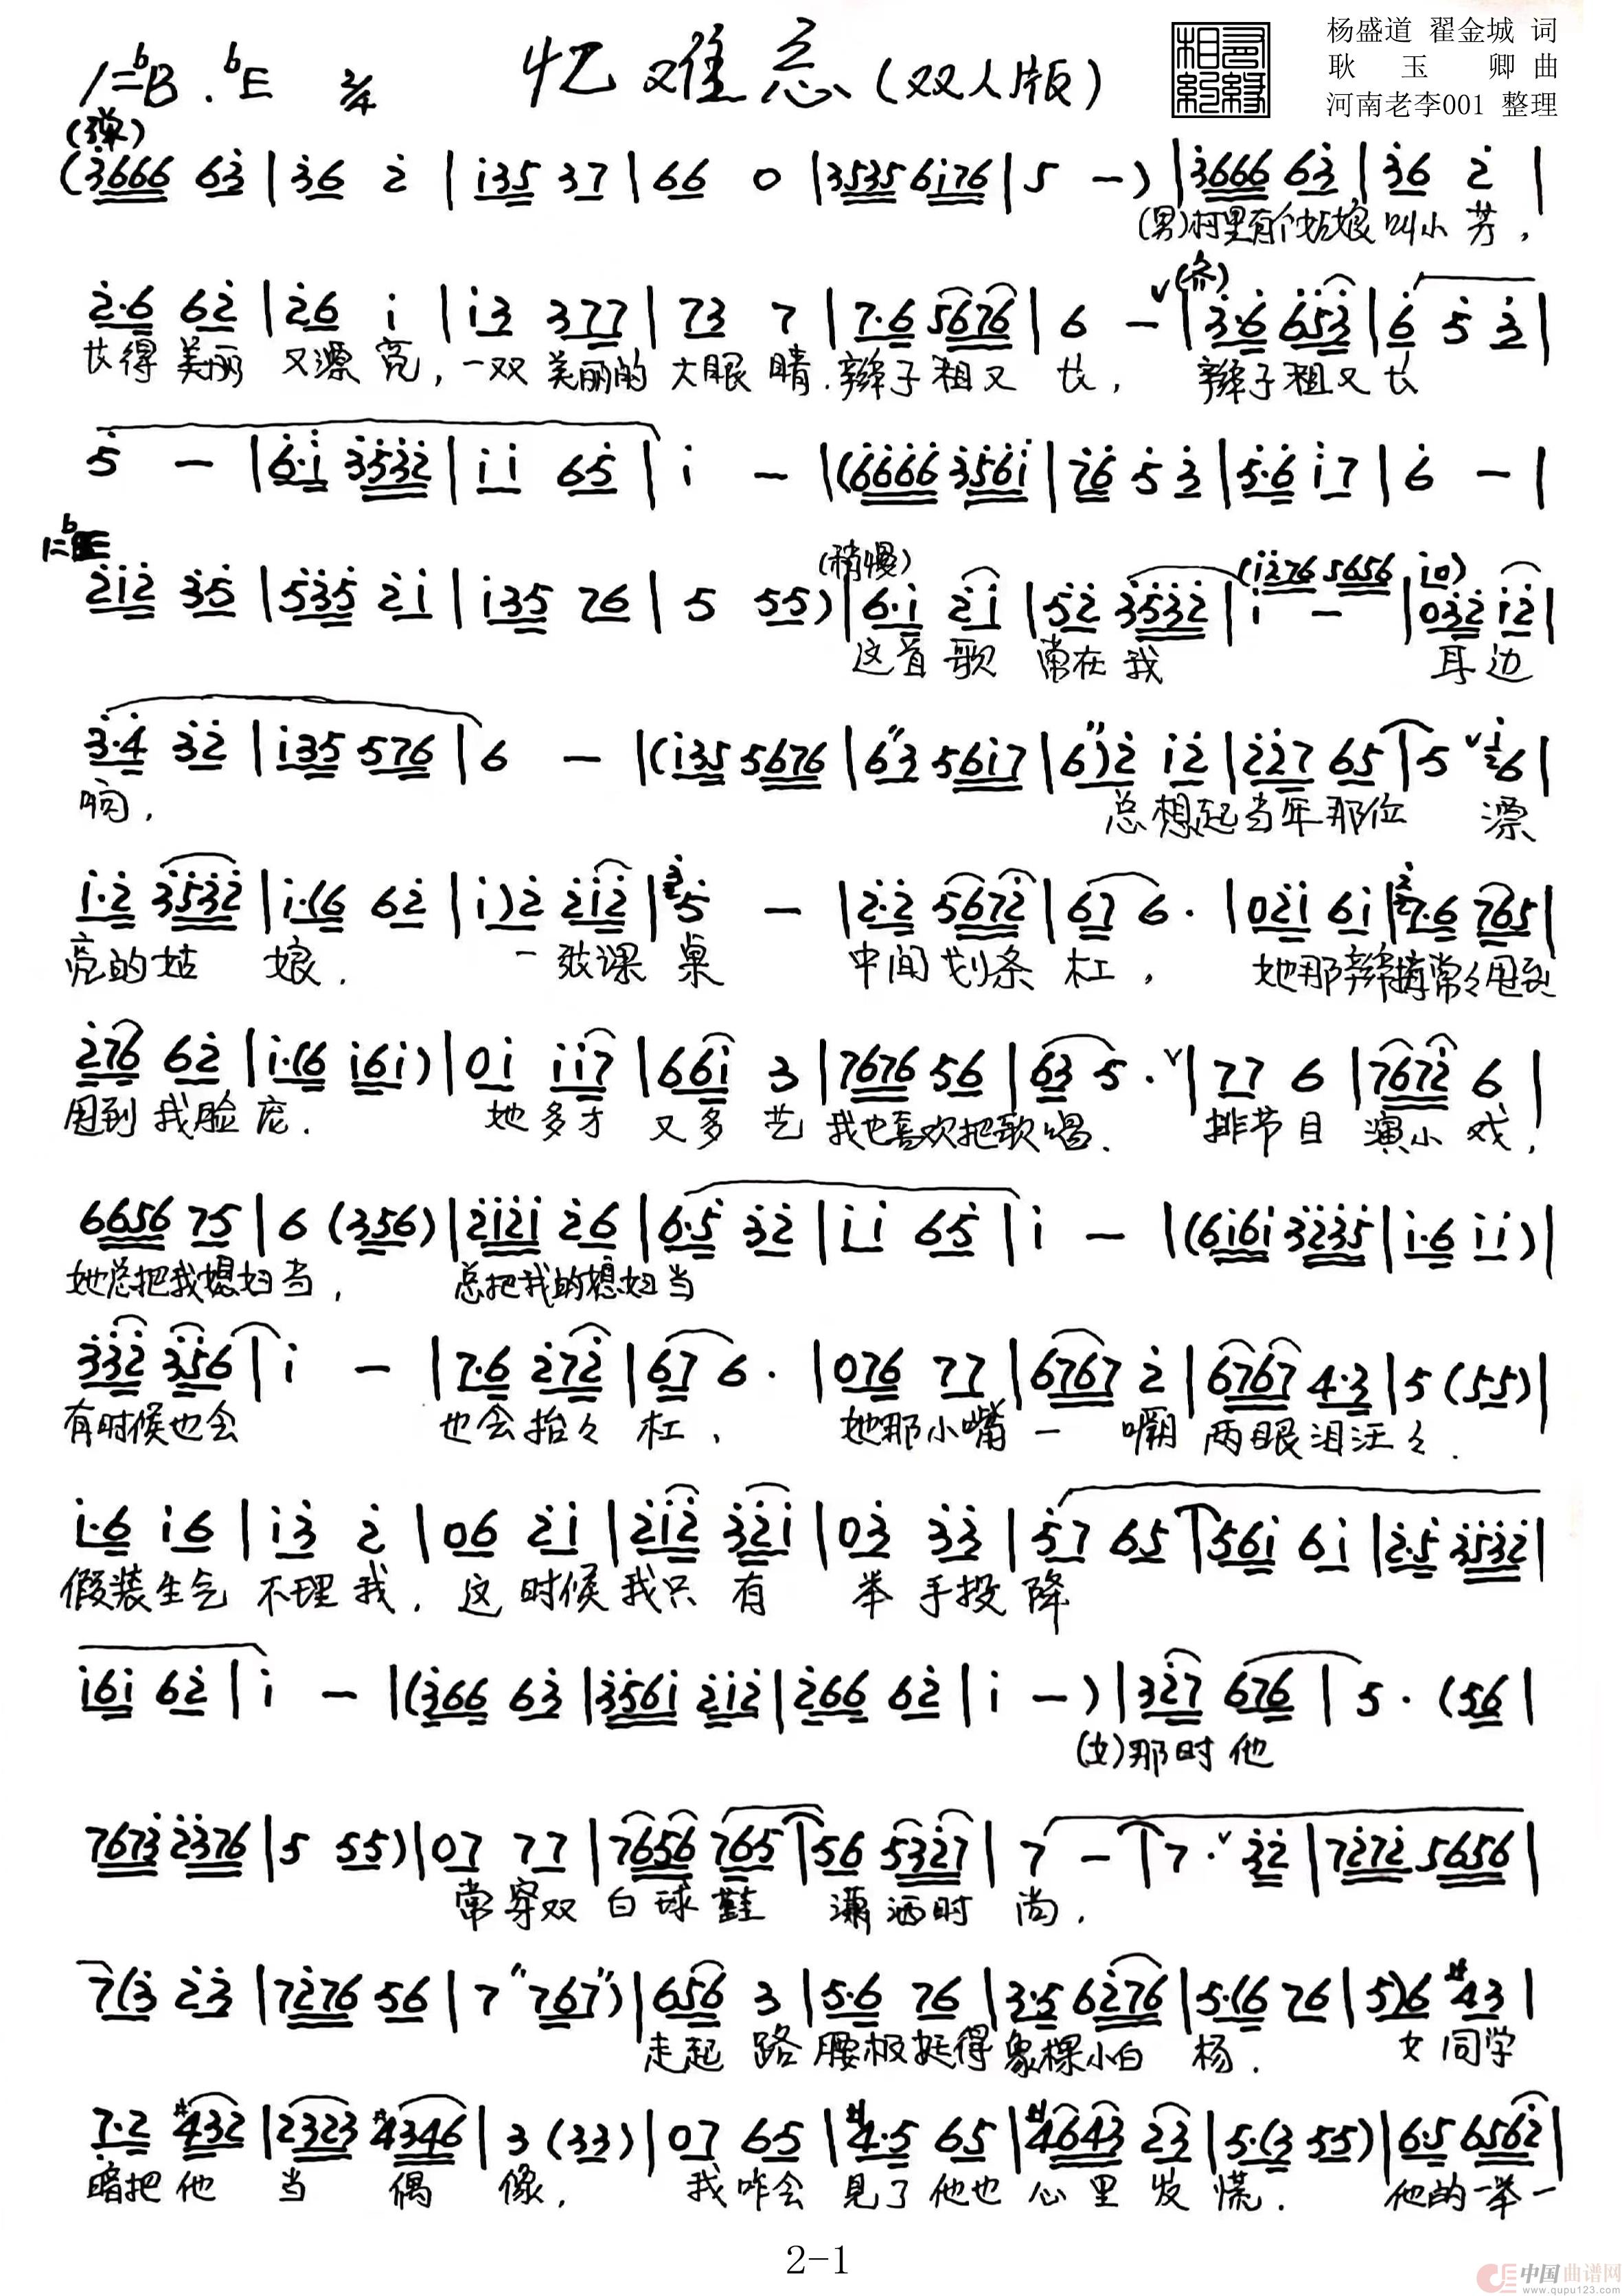 忆难忘(双人版)
1=bB.bE 2/4
杨盛道 翟金城 词
耿玉卿 曲
河南老李001 整理
(弹)
(3666 63|36 2|135 37|66 0|3535 6176|5 -)|3666 63|36 2|
(男)村里有个姑娘叫小芳,
(齐)
2·6 62|26 1|13 377|73 7|7·6 5676|6 -|3·6 653|6 5 3|
长得美丽又漂亮,一双美丽的大眼睛.辫子粗又长,辫子粗又长
5 -|6·1 3532|11 65|1 -|(6666 3561|76 5 3|5·6 17|6 -|
1=bE
(稍慢)
(1276 5656 10)
212 35|535 21|135 76|5 55)|6·1 21|52 3532|1 -|032 12|
这首歌常在我耳边
3·4 32|135 576|6 -|(135 5676|6"3 5617|6")2 12|227 65|5 6|
响,总想起当年那位漂
1·2 3532|1·(6 62|1)2 212|5 -|2·2 5672|67 6·|021 61|7·6 765|
亮的姑娘.一张课桌中间划条杠,她那辫梢常々甩到
276 62|1·(6 161)|01 117|661 3|7676 56|63 5·|77 6|7672 6|
甩到我脸庞.她多才又多艺我也喜欢把歌唱.排节目演小戏,
6656 75|6 (356)|2121 26|6·5 32|11 65|1 -|(6161 3235|1·6 11)|
她总把我媳妇当,总把我的媳妇当
332 356|1 -|7·6 272|67 6·|076 77|6767 2|6767 4·3|5 (55)|
有时候也会也会抬々杠,她那小嘴一嘣两眼泪汪々.
1·6 16|13 2|06 21|212 321|03 33|57 65|561 61|2·5 3532|
假装生气不理我.这时候我只有举手投降
161 62|1 -|(366 63|3561 212|266 62|1 -)|327 676|5·(56|
(女)那时他
7673 2376|5 55)|07 77|7656 765|56 5327|7 -|7· 32|7272 5656|
常穿双白球鞋潇洒时尚.
7(3 23|7276 56|7 "767")|656 3|5·6 76|3·5 6276|5·(6 76|5)6 #43|
走起路腰板挺得象棵小白杨.女同学
7·2 #432|2323 #4346|3 (33)|07 65|#4·5 65|#4643 23|5·(3 55)|6·5 6562|
暗把他当偶像,我咋会见了他也心里发慌.他的一举一
2-1
中国曲谱网
www.qupu123.com